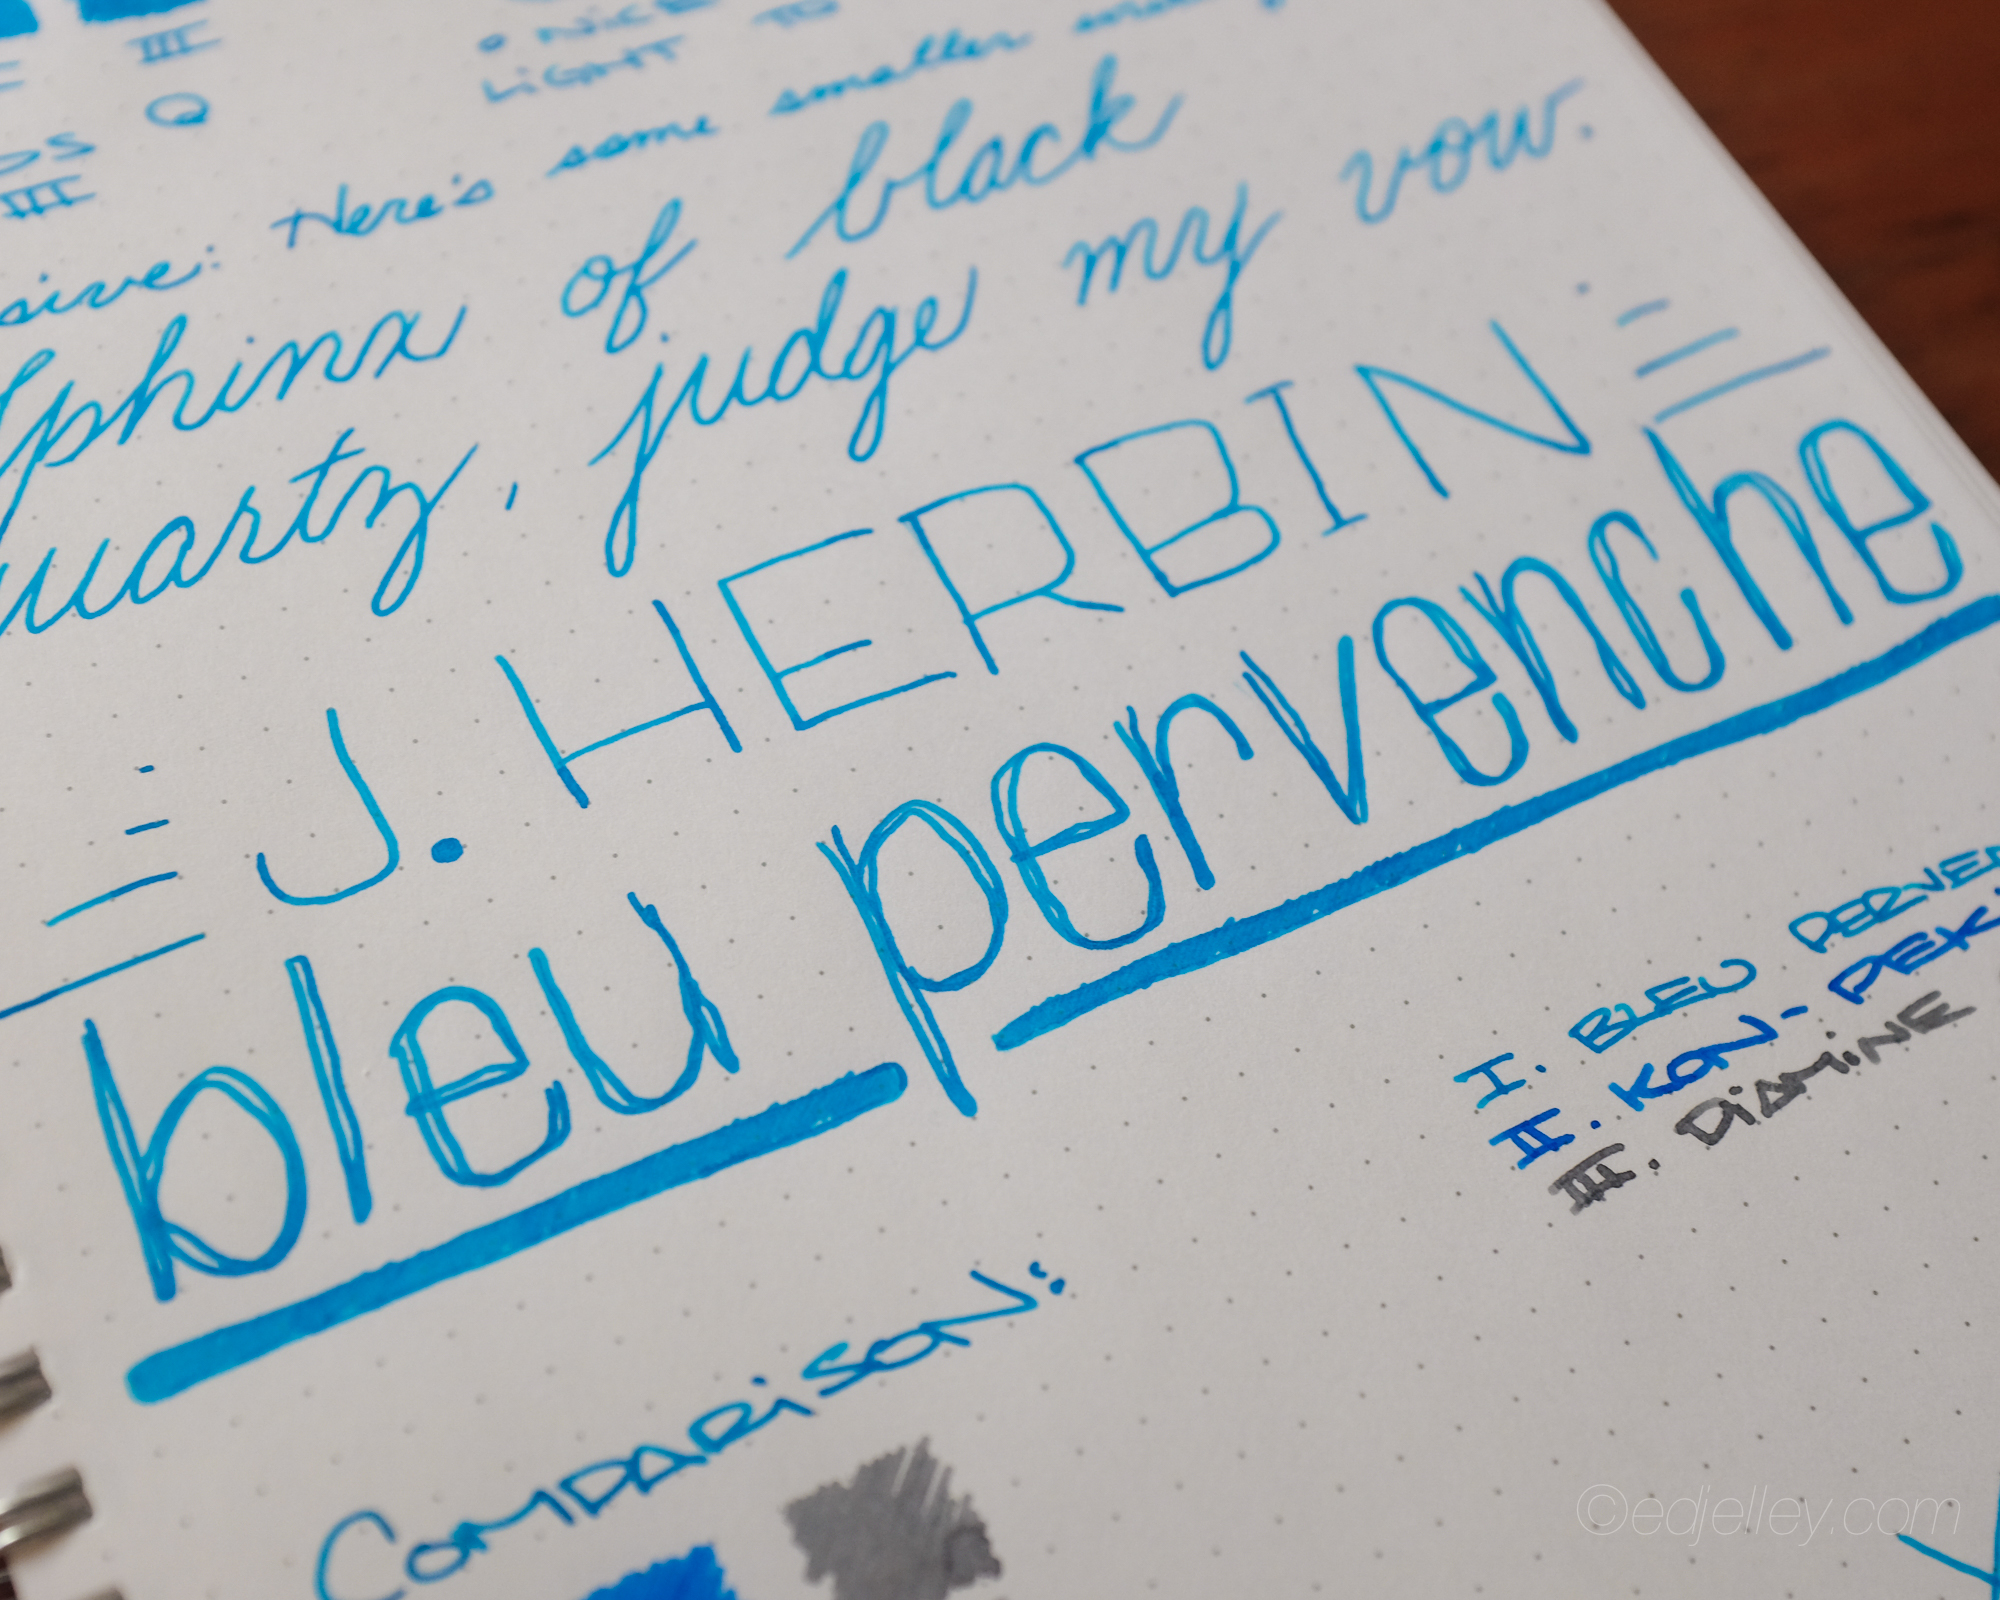 III
• NICE
LIGHT TO
Q
III
Here's some smaller
Sphinx of black
quartz, judge my vow.
J. HERBIN
bleu pervenche
I. BLEU
II. KON-
III. DIAMINE
COMPARISON:
©edjelley.com